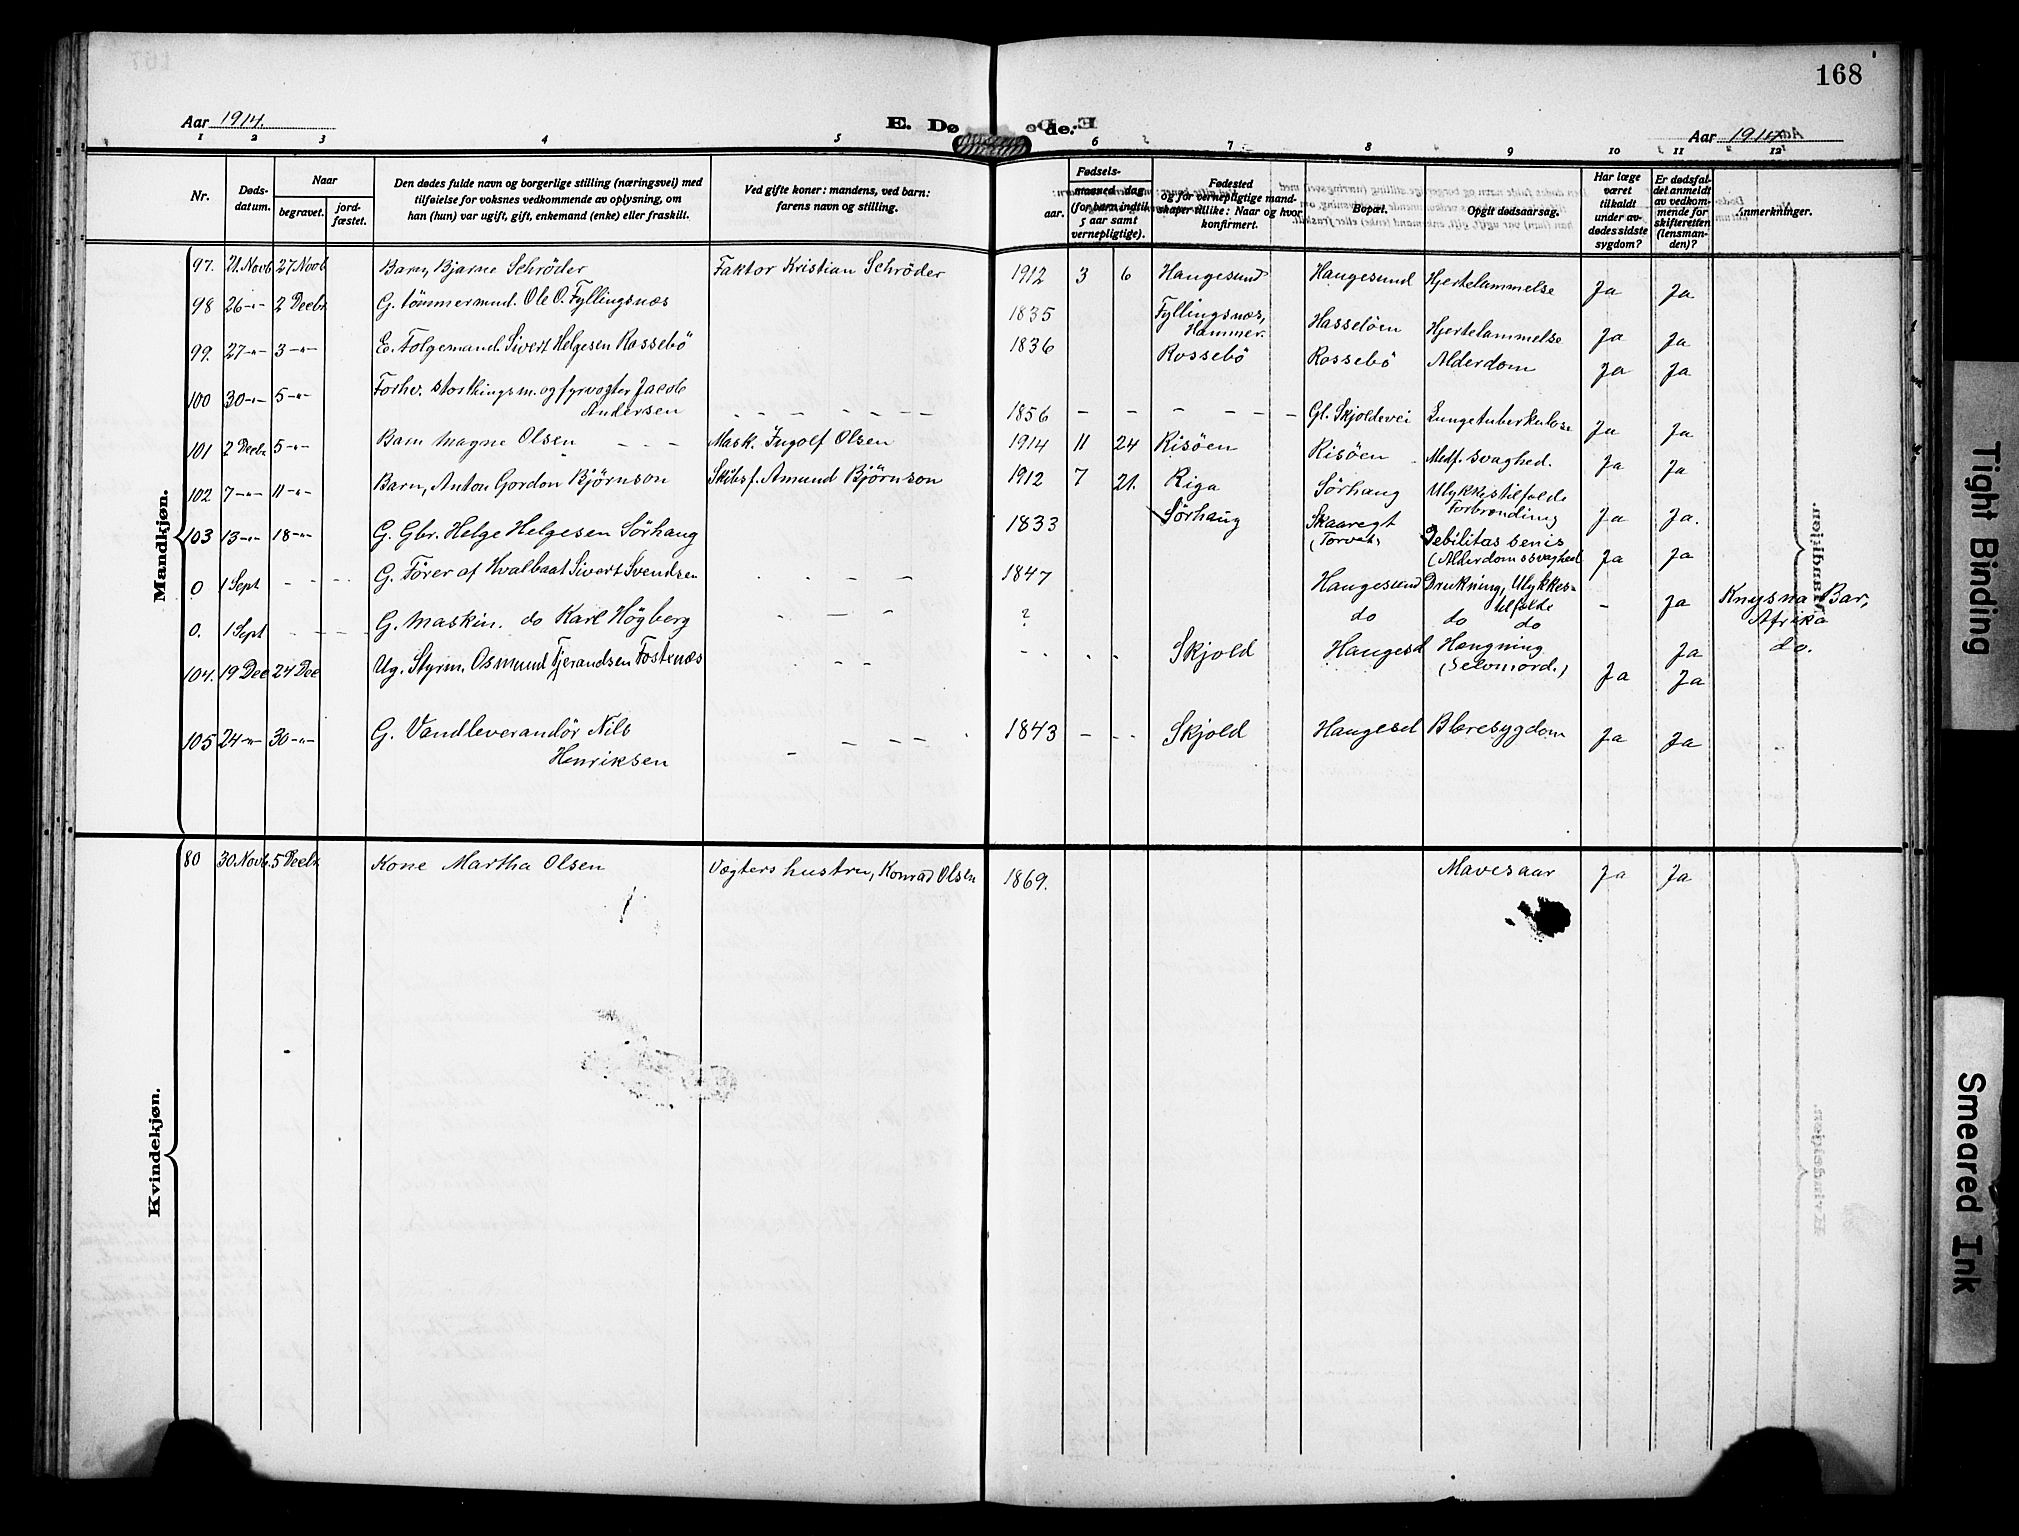 168
Aar 1914.
E. Dø de.
Aar 1914
1 2 3 4 5 6 7 8 9 10 11 12
Nr.
Døds-
datum.
Naar
begravet.
jord-
fæstet.
Den dødes fulde navn og borgerlige stilling (næringsvei) med
tilføielse for voksnes vedkommende av oplysning, om
han (hun) var ugift, gift, enkemand (enke) eller fraskilt.
Ved gifte koner: mandens, ved barn:
farens navn og stilling.
Fødsels-
aar.
maaned dag
(for barn indtil
5 aar samt
vernepligtige).
Fødested
og for vernepligtige mand-
skaper tillike: Naar og hvor
konfirmert.
Bopæl.
Opgit dødsaarsag.
Har læge
været
tilkaldt
under av-
dødes sidste
sygdom?
Er dødsfal-
det anmeldt
av vedkom-
mende for
skifteretten
(lensman-
den)?
Anmerkninger.
Mandkjøn.
97. 21. Novb 27 Novb Barn, Bjarne Schröder Faktor Kristian Schröder 1912 3 6 Haugesund Haugesund Hjertelammelse Ja Ja
98 26-"- 2 Decbr G. tömmermnd. Ole O. Fyllingsnæs 1835 Fyllingsnæs, Hammer. Hasseløen Hjertelammelse Ja Ja
99. 27-"- 3-"- E. Folgemand. Sivert Helgesen Rossebö 1836 Rossebö Rossebö Alderdom Ja Ja
100 30-"- 5-"- Forhv. storthingsm. og fyrvogter Jacob
Andersen 1856 Gl. Skjoldevei Lungetuberkulose Ja Ja
101 2 Decbr 5-"- Barn Magne Olsen Mask. Ingolf Olsen 1914 11 24 Risöen Risöen Medf. svaghed. Ja Ja
102 7-"- 11-"- Barn, Anton Gordon Björnson Skibsf. Amund Björnson 1912 7 21. Riga Sörhaug Ulykkestilfælde
Forbrænding Ja Ja.
103 13-"- 18-"- G. Gbr. Helge Helgesen Sörhaug 1833 Sörhaug Skaaregt
(Torvet) Debilitas senis
(Alderdomssvaghed Ja Ja
0 1 Sept G. Förer af Hvalbaat Sivert Svendsen 1847 Haugesund Drukning, Ulykkes-
tilfælde - Ja Knysna Bar,
Afrika
0. 1 Sept G. Maskin. do Karl Högberg ? do do do Ja do.
104. 19 Dec 24 Dec Ug. Styrm. Osmund Tjerandsen Fostenæs Skjold Haugesd Hængning
(Selvmord.) Ja Ja
105 24-"- 30-"- G. Vandleverandør Nils
Henriksen 1843 Skjold Haugesd Blæresygdom Ja Ja
Kvindekjøn.
80 30 Novb. 5 Decbr Kone Martha Olsen Vægters hustru, Konrad Olsen 1869. Mavesaar Ja Ja
Tight Binding
Smeared Ink